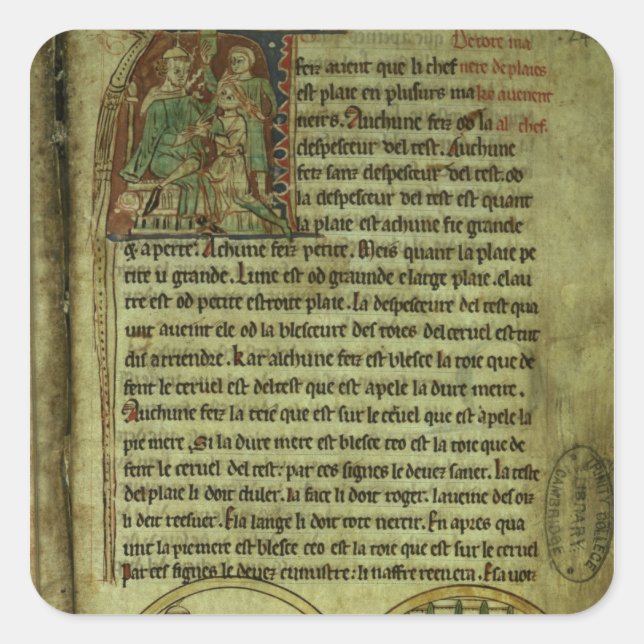 De tote ma
fez avient que li chef nere de plaies
est plaie en plusurs ma ke avenent
neirs. Auchune fez od la al chef.
despesceur del test. Auchune
fez sanz despesceur del test. od
la despesceur del test est quant
la plaie est achune fie grande
& aperte. Achune feiz petite. Meis quant la plaie pe
tite u grande. Lune est od graunde e large plaie. elau
tre est od petite estroite plaie. La despesceure del test qua
unt avient ele od la blesceure des toies del cervel estut
dis arriendre. kar alchune fez est blesce la toie que de
fent le cervel est del test que est apele la dure mere.
Auchune fez la teie que est sur le cervel que est apele la
pie mere. Si la dure mere est blesce ceo est la toie que de
fent le cervel del test: par ces signes le devez saver. La teste
del plaie li doit duler. la face li doit roger. la veine des oiz
li deit reesuer. E la lange li doit tote nercir. En apres qua
unt la piemere est blesce ceo est la toie que est sur le cervel
Par ces signes le devez cunustre: li naffre
TRINITY COLLEGE
LIBRARY
CAMBRIDGE